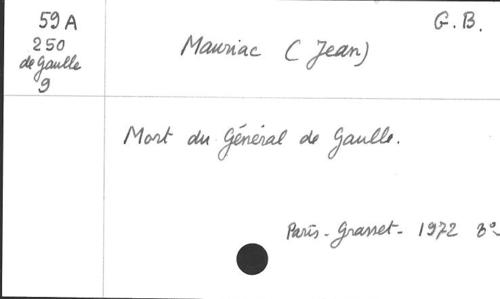 59 A
250
de Gaulle
9
G. B.
Mauriac (Jean)
Mort du Général de Gaulle.
Paris - Grasset - 1972 8°